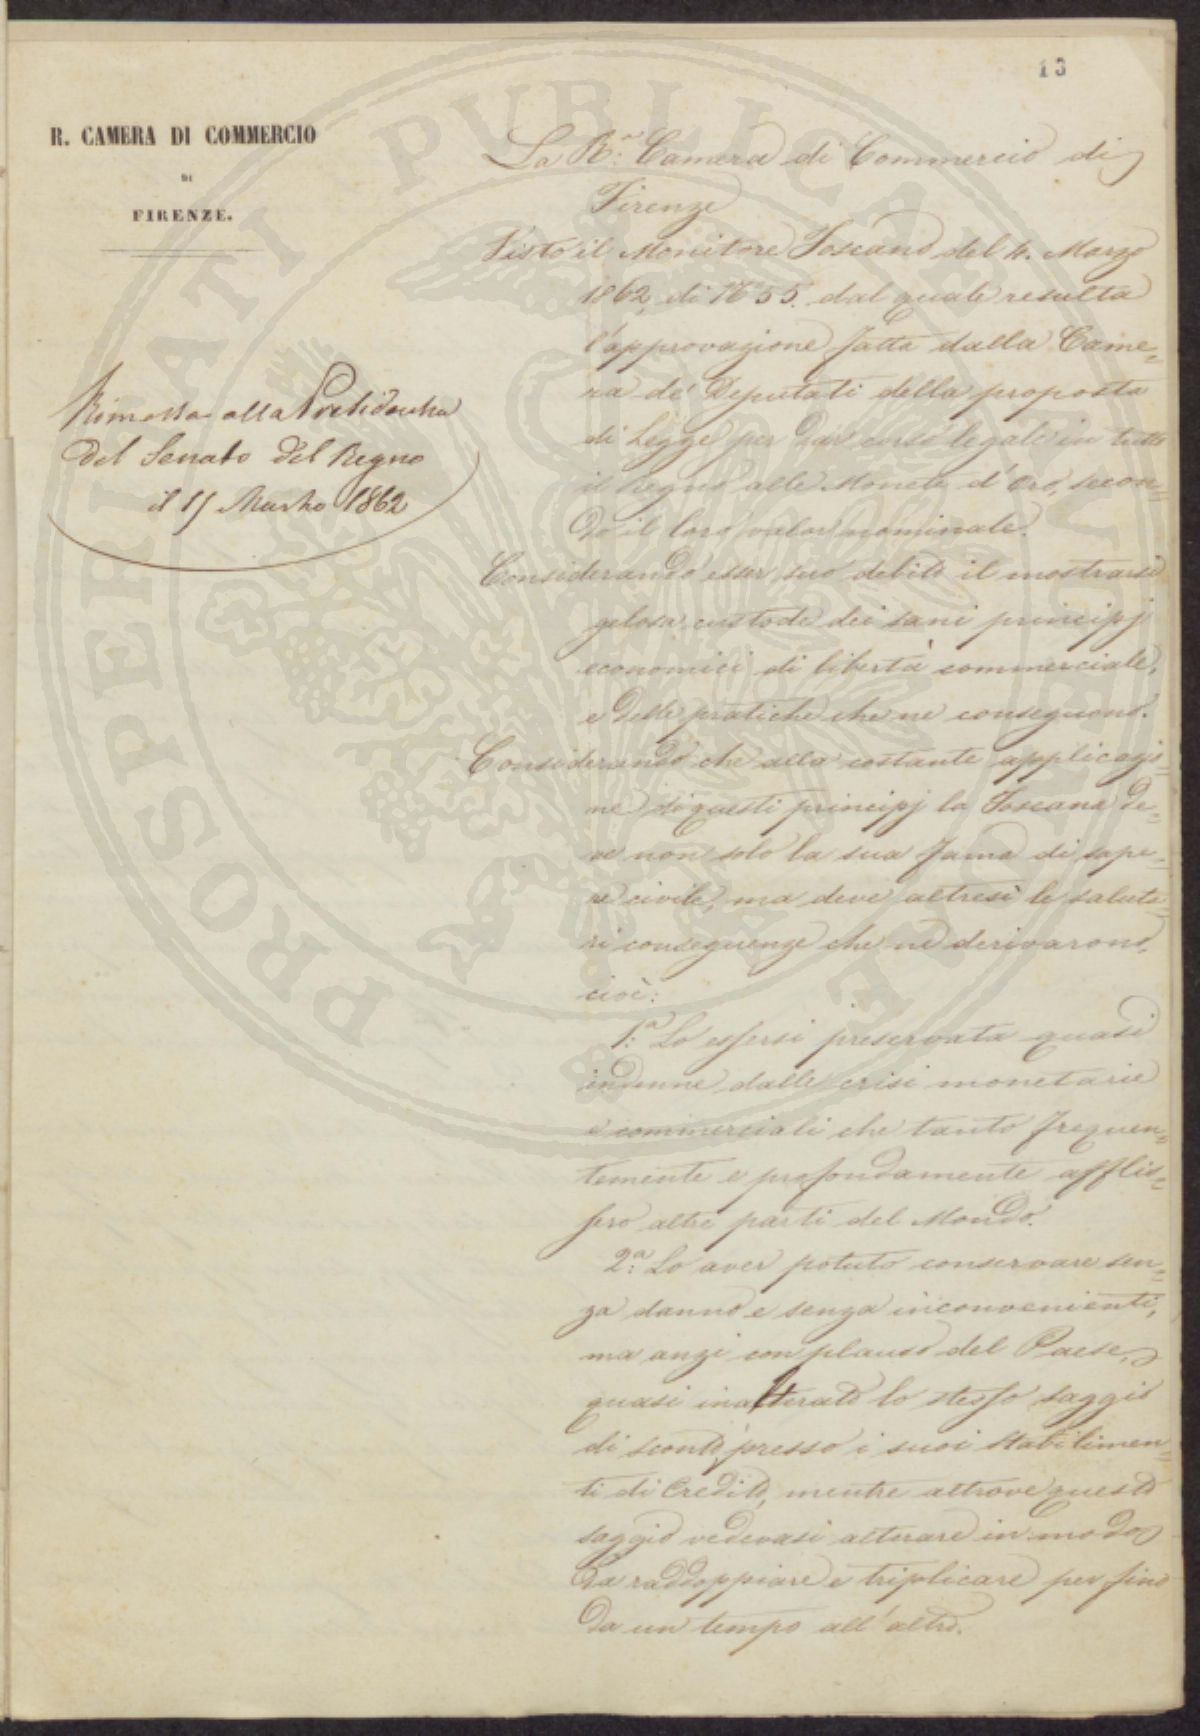 13
R. CAMERA DI COMMERCIO
DI
FIRENZE.
Rimessa alla Presidenza
del Senato del Regno
il 15 Marzo 1862
La R.ª Camera di Commercio di
Firenze
Visto il Monitore Toscano del 4. Marzo
1862 di N.º 55. dal quale resulta
l'approvazione fatta dalla Came=
ra de' Deputati della proposta
di Legge per dar corso legale in tutto
il Regno alle Monete d'Oro, secon=
do il loro valor nominale.
Considerando esser suo debito il mostrarsi
gelosa custode dei sani principj
economici di libertà commerciale,
e delle pratiche che ne conseguono.
Considerando che alla costante applicazio=
ne di questi principj la Toscana de=
ve non solo la sua fama di sape=
re civile, ma deve altresì le saluta=
ri conseguenze che ne derivarono,
cioè:
1.ª Lo essersi preservata quasi
indenne dalle crisi monetarie
e commerciali che tanto frequen=
temente e profondamente afflis=
sero altre parti del Mondo.
2.ª Lo aver potuto conservare sen=
za danno e senza inconvenienti,
ma anzi con plauso del Paese,
quasi inalterato lo stesso saggio
di sconto presso i suoi stabilimen=
ti di Credito, mentre altrove questo
saggio vedevasi alterare in modo
da raddoppiare e triplicare per fino
da un tempo all'altro.
PROSPERITATI PUBLICAE